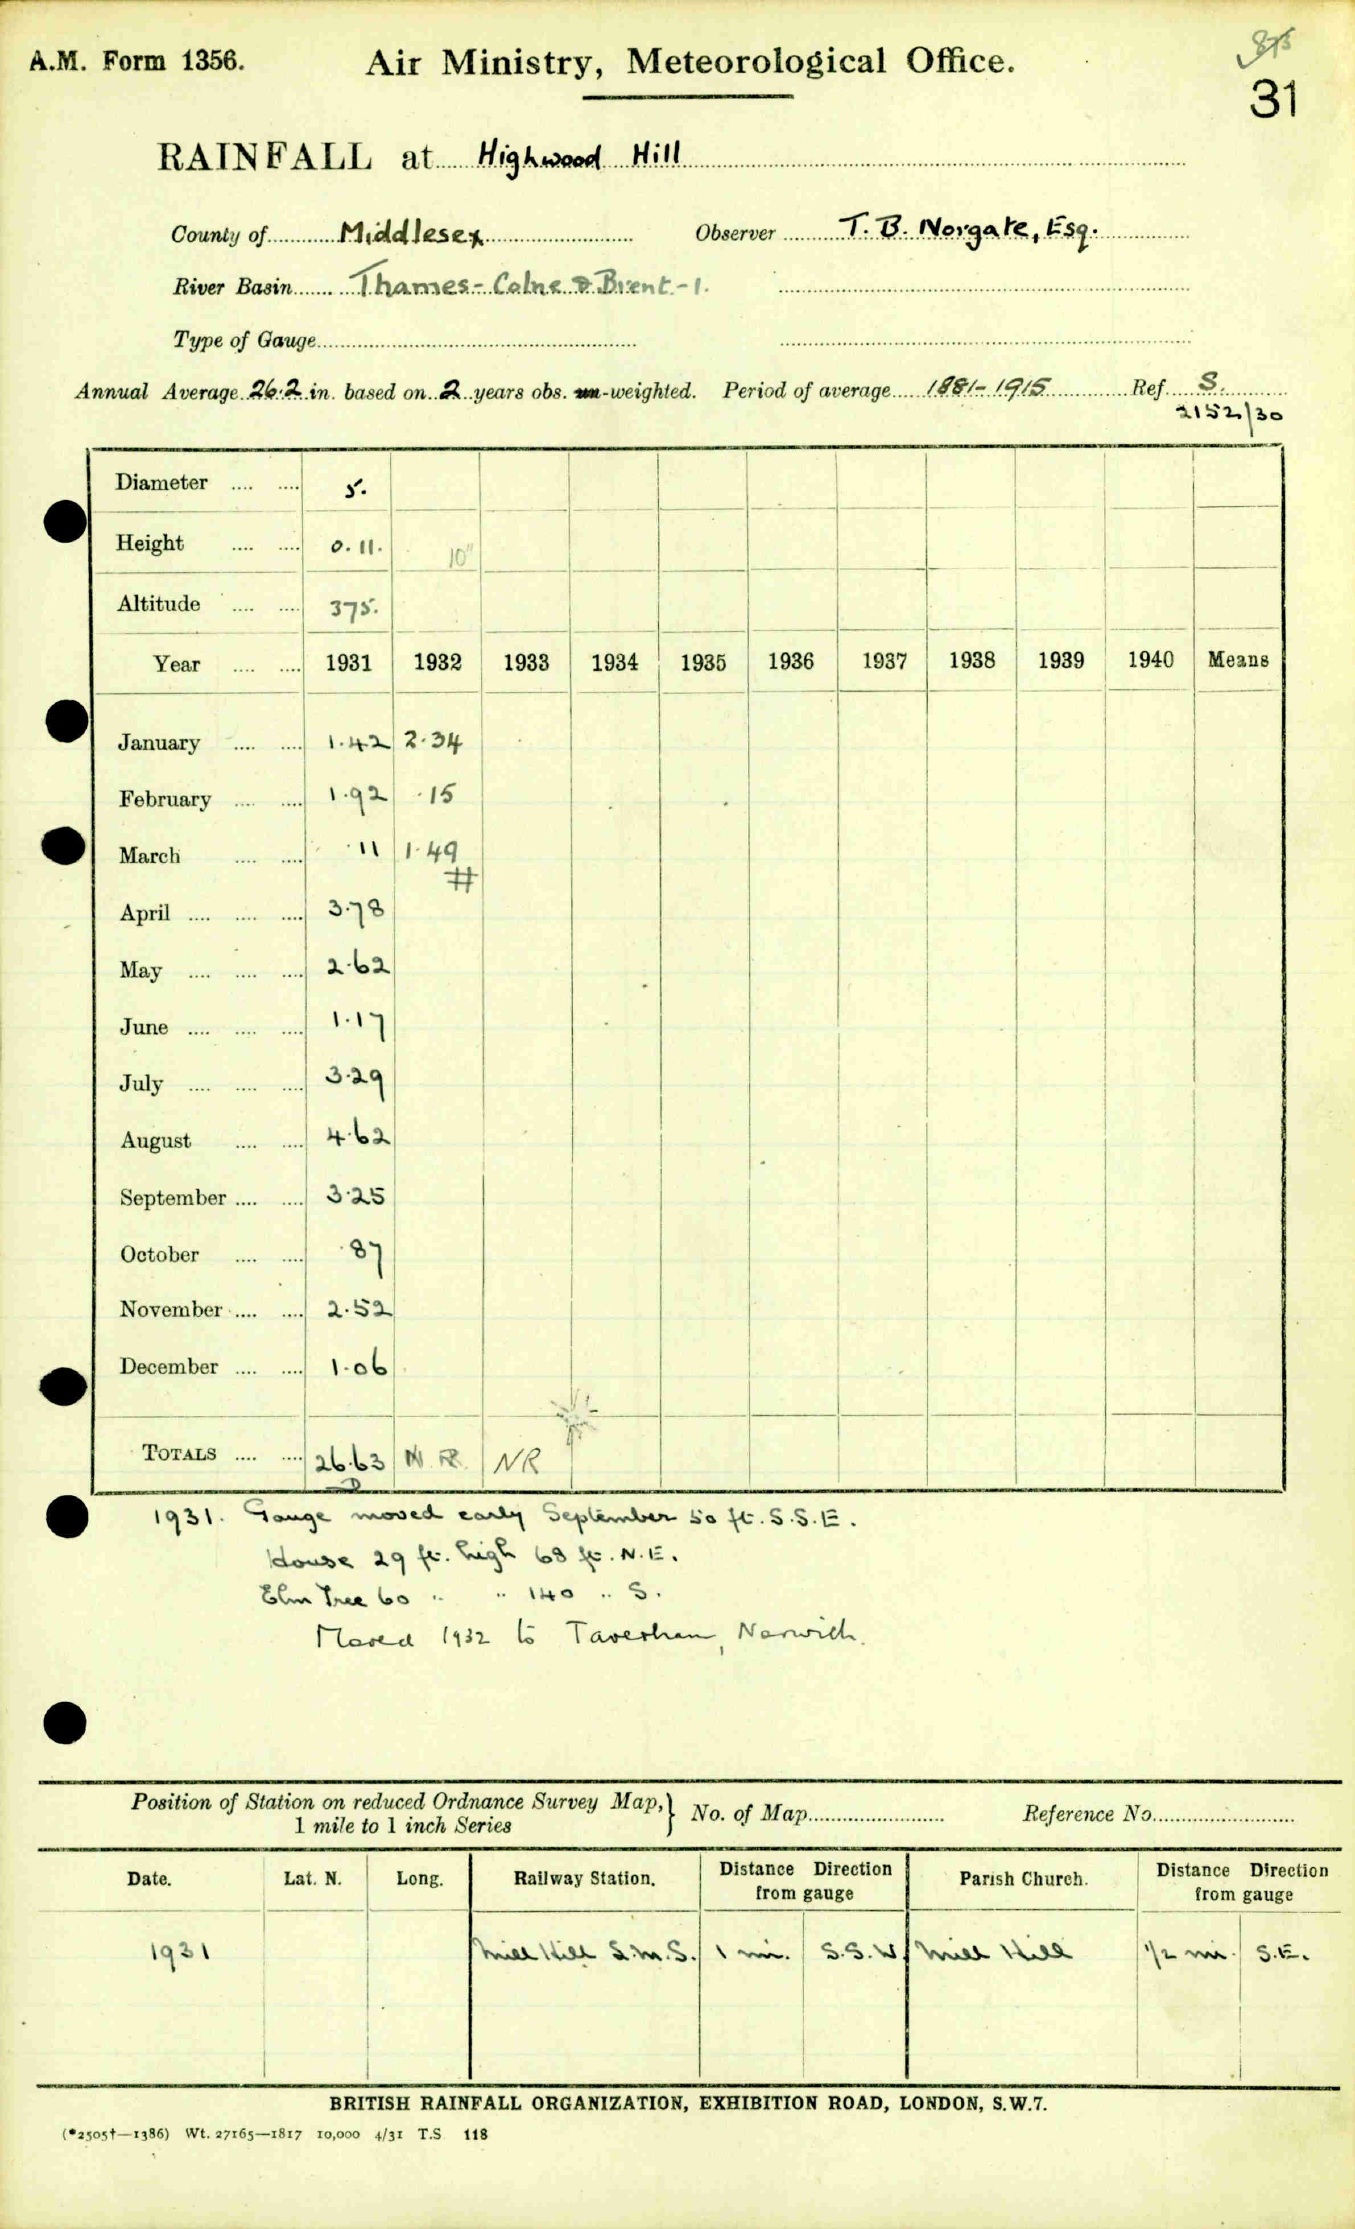 A.M. Form 1356. Air Ministry, Meteorological Office.
31
RAINFALL at Highwood Hill
County of Middlesex Observer T. B. Norgate, Esq.
River Basin Thames - Colne & Brent - 1.
Type of Gauge
Annual Average 26.2 in. based on 2 years obs. -weighted. Period of average 1881-1915 Ref. S.
2152/30
Diameter 5.
Height 0.11. 10"
Altitude 375.
Year 1931 1932 1933 1934 1935 1936 1937 1938 1939 1940 Means
January 1.42 2.34
February 1.92 .15
March .11 1.49
#
April 3.78
May 2.62
June 1.17
July 3.29
August 4.62
September 3.25
October .87
November 2.52
December 1.06
TOTALS 26.63 N.R. NR
1931. Gauge moved early September 50 ft. S.S.E.
House 29 ft. high 68 ft. N.E.
Elm Tree 60 " " 140 " S.
Moved 1932 to Taverham, Norwich.
Position of Station on reduced Ordnance Survey Map, } No. of Map Reference No.
1 mile to 1 inch Series
Date. Lat. N. Long. Railway Station. Distance Direction from gauge Parish Church. Distance Direction from gauge
1931 Mill Hill L.M.S. 1 mi. S.S.W. Mill Hill 1/2 mi. S.E.
BRITISH RAINFALL ORGANIZATION, EXHIBITION ROAD, LONDON, S.W.7.
(*2505†—1386) Wt. 27165—1817 10,000 4/31 T.S. 118